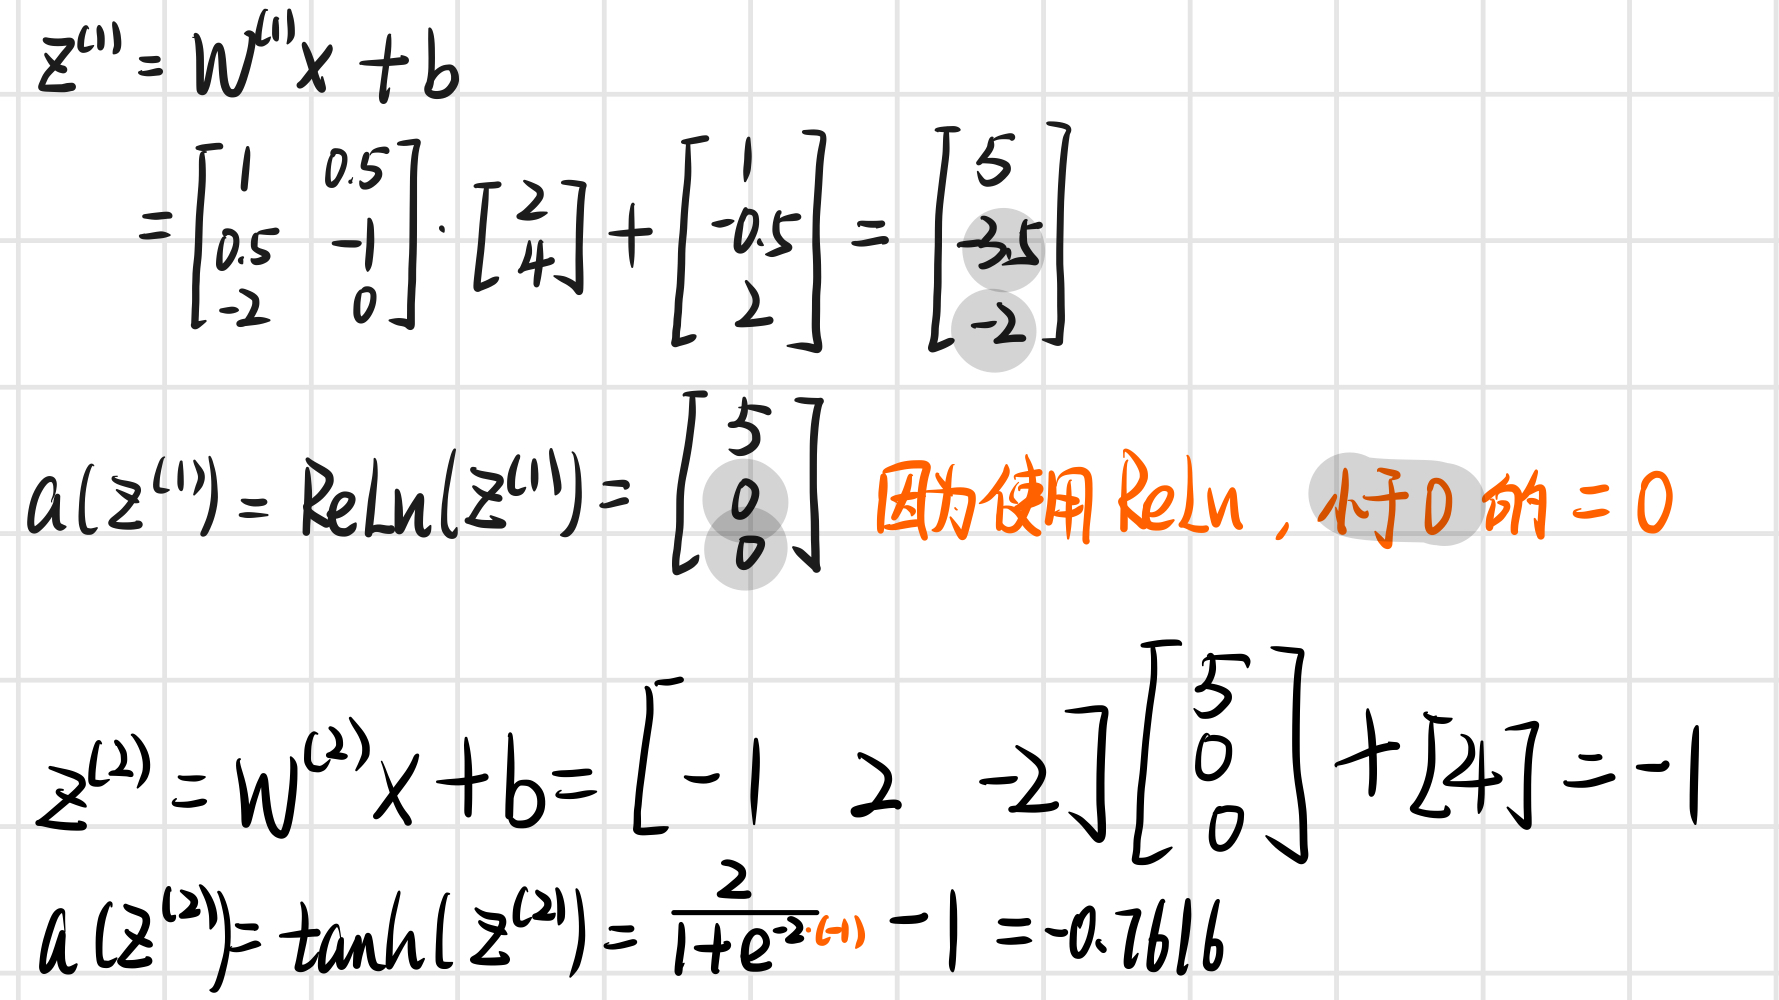 z⁽¹⁾ = W⁽¹⁾x + b
= [1 0.5; 0.5 -1; -2 0] · [2; 4] + [1; -0.5; 2] = [5; -3.5; -2]
a(z⁽¹⁾) = ReLn(z⁽¹⁾) = [5; 0; 0] 因为使用 ReLn , 小于0 的 = 0
z⁽²⁾ = W⁽²⁾x + b = [-1 2 -2][5; 0; 0] + [4] = -1
a(z⁽²⁾) = tanh(z⁽²⁾) = 2/(1+e^(-2·(-1))) - 1 = -0.7616